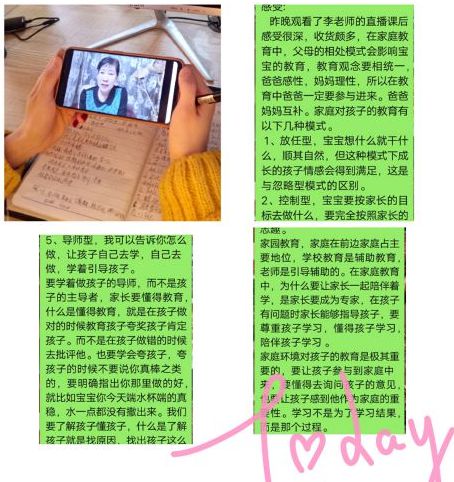 感受:
昨晚观看了李老师的直播课后
感受很深，收货颇多，在家庭教
育中，父母的相处模式会影响宝
宝的教育，教育观念要相统一，
爸爸感性，妈妈理性，所以在教
育中爸爸一定要参与进来。爸爸
妈妈互补。家庭对孩子的教育有
以下几种模式。
1、放任型，宝宝想什么就干什
么，顺其自然，但这种模式下成
长的孩子情感会得到满足，这是
与忽略型模式的区别。
2、控制型，宝宝要按家长的目
标去做什么，要完全按照家长的
5、导师型，我可以告诉你怎么
做，让孩子自己去学，自己去
做，学着引导孩子。
要学着做孩子的导师，而不是孩
子的主导者，家长要懂得教育，
什么是懂得教育，就是在孩子做
对的时候教育孩子夸奖孩子肯定
孩子。而不是在孩子做错的时候
去批评他。也要学会夸孩子，夸
孩子的时候不要说你真棒之类
的，要明确指出你那里做的好，
就比如宝宝你今天端水杯端的真
稳，水一点都没有撒出来。我们
要了解孩子懂孩子，什么是了解
孩子就是找原因，找出孩子这么
家园教育，家庭在前边家庭占主
要地位，学校教育是辅助教育，
老师是引导辅助的。在家庭教育
中，为什么要让家长一起陪伴着
学，是家长要成为专家，在孩子
有问题时家长能够指导孩子，要
尊重孩子学习，懂得孩子学习，
陪伴孩子学习。
家庭环境对孩子的教育是极其重
要的，要让孩子参与到家庭中
来，要懂得去询问孩子的意见，
让孩子感到他作为家庭的重
要性。学习不是为了学习结果，
而是那个过程。
Today